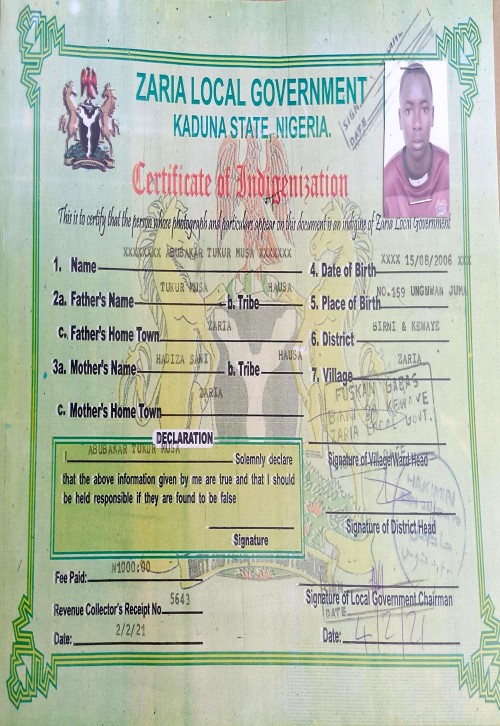 ZARIA LOCAL GOVERNMENT
KADUNA STATE, NIGERIA.
SIGN
DATE
Certificate of Indigenization
This is to certify that the person whose photograph and particulars appear on this document is an indigene of Zaria Local Government
1. Name XXXXXXX ABUBAKAR TUKUR MUSA XXXXXXX
2a. Father's Name TUKUR MUSA b. Tribe HAUSA
c. Father's Home Town ZARIA
3a. Mother's Name HADIZA SANI b. Tribe HAUSA
c. Mother's Home Town ZARIA
4. Date of Birth XXXX 15/08/2006 XXX
5. Place of Birth NO.159 UNGUWAN JUMA
6. District BIRNI & KEWAYE
7. Village ZARIA
DECLARATION
I ABUBAKAR TUKUR MUSA Solemnly declare
that the above information given by me are true and that I should
be held responsible if they are found to be false
Signature
FUSKAN GABAS
BIRNI DA KEWAYE
ZARIA LOCAL GOVT.
Signature of Village/Ward Head
HAKIMIN
Signature of District Head
Fee Paid: ₦1000:00
Revenue Collector's Receipt No. 5643
Date: 2/2/21
Signature of Local Government Chairman
DATE
Date: 4/2/21